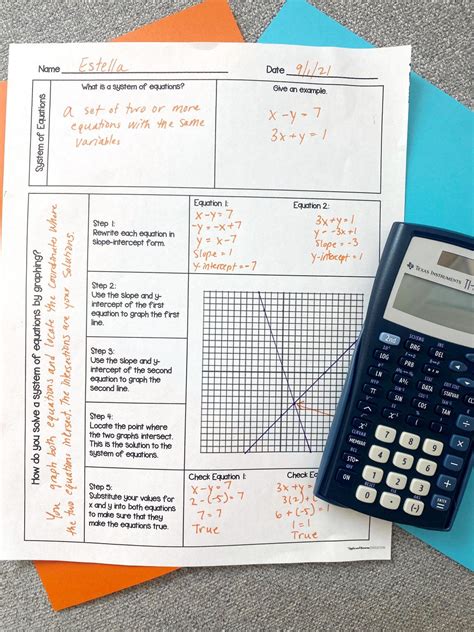 Name Estella Date 9/1/21
System of Equations
What is a system of equations?
a set of two or more
equations with the same
variables
Give an example.
x - y = 7
3x + y = 1
How do you solve a system of equations by graphing?
You graph both equations and locate the coordinates where
the two equations intersect. The intersections are your solutions.
Step 1:
Rewrite each equation in
slope-intercept form.
Equation 1:
x - y = 7
-y = -x + 7
y = x - 7
Slope = 1
y-intercept = -7
Equation 2:
3x + y = 1
y = -3x + 1
Slope = -3
y-intercept = 1
Step 2:
Use the slope and y-
intercept of the first
equation to graph the first
line.
Step 3:
Use the slope and y-
intercept of the second
equation to graph the
second line.
Step 4:
Locate the point where
the two graphs intersect.
This is the solution to the
system of equations.
Step 5:
Substitute your values for
x and y into both equations
to make sure that they
make the equations true.
Check Equation 1:
x - y = 7
2 - (-5) = 7
7 = 7
True
Check Equation 2:
3x + y =
3(2) +
6 + (-5) = 1
1 = 1
True
TEXAS INSTRUMENTS
2nd
DRG
DEL
LOG
PRB
LN
DATA
STO►
ON